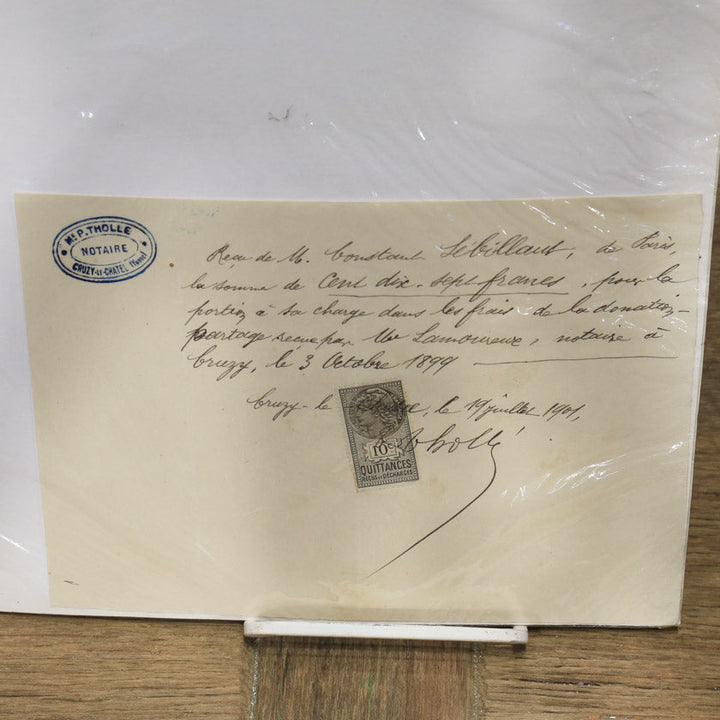 Me P. THOLLE
NOTAIRE
CRUZY-LE-CHATEL (Yonne)
Reçu de M. Constant Sébillaut, de Paris,
la somme de Cent dix-sept francs, pour la
portion à sa charge dans les frais de la donation-
partage reçue par Me Lamoureux, notaire à
Cruzy, le 3 Octobre 1899
Cruzy-le, le 19 juillet 1901,
Tholle
10c
QUITTANCES
REÇUS ET DÉCHARGES